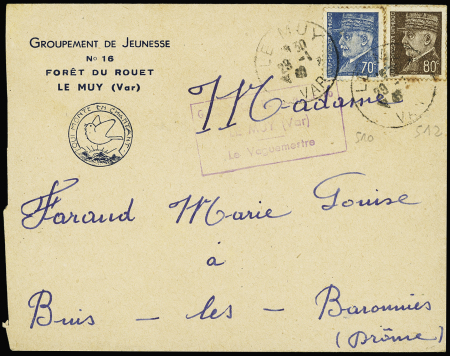 GROUPEMENT DE JEUNESSE
No 16
FORÊT DU ROUET
LE MUY (Var)
QUI MONTE EN CHANTANT
LE MUY
VAR
70c
80c
Madame
LE MUY (Var)
Le Vaguemestre
510
512
Faraud Marie Louise
à
Buis - les - Baronnies
(Drôme)